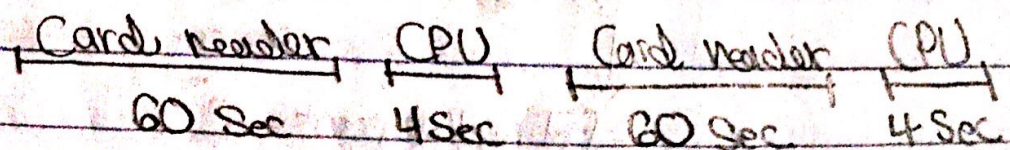 Card reader CPU Card reader CPU
60 Sec 4 Sec 60 Sec 4 Sec